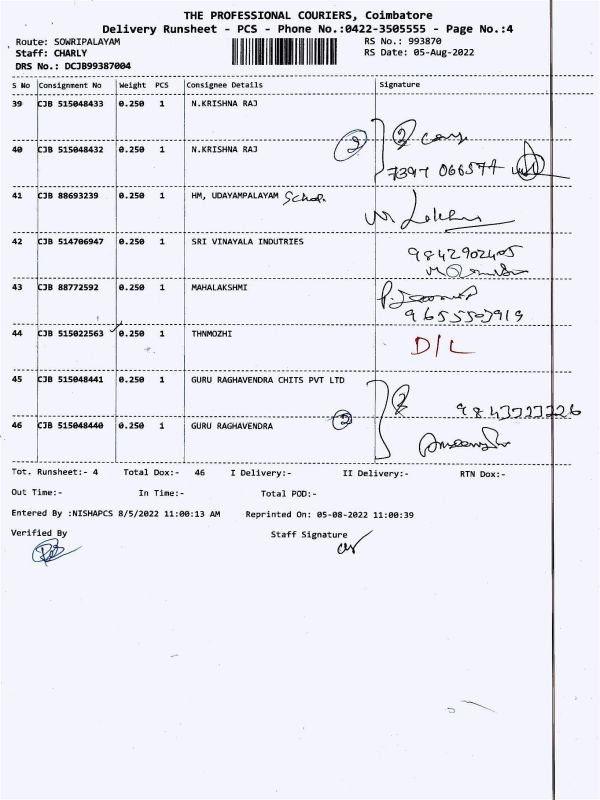 THE PROFESSIONAL COURIERS, Coimbatore
Delivery Runsheet - PCS - Phone No.:0422-3505555 - Page No.:4
Route: SOWRIPALAYAM RS No.: 993870
Staff: CHARLY RS Date: 05-Aug-2022
DRS No.: DCJB99387004
S No Consignment No Weight PCS Consignee Details Signature
39 CJB 515048433 0.250 1 N.KRISHNA RAJ 2
40 CJB 515048432 0.250 1 N.KRISHNA RAJ 2
7397 066577
41 CJB 88693239 0.250 1 HM, UDAYAMPALAYAM School
42 CJB 514706947 0.250 1 SRI VINAYALA INDUTRIES 9842902405
43 CJB 88772592 0.250 1 MAHALAKSHMI
9655507919
44 CJB 515022563 0.250 1 THNMOZHI D/L
45 CJB 515048441 0.250 1 GURU RAGHAVENDRA CHITS PVT LTD 2
46 CJB 515048440 0.250 1 GURU RAGHAVENDRA 2
Tot. Runsheet:- 4 Total Dox:- 46 I Delivery:- II Delivery:- RTN Dox:-
Out Time:- In Time:- Total POD:-
Entered By :NISHAPCS 8/5/2022 11:00:13 AM Reprinted On: 05-08-2022 11:00:39
Verified By Staff Signature